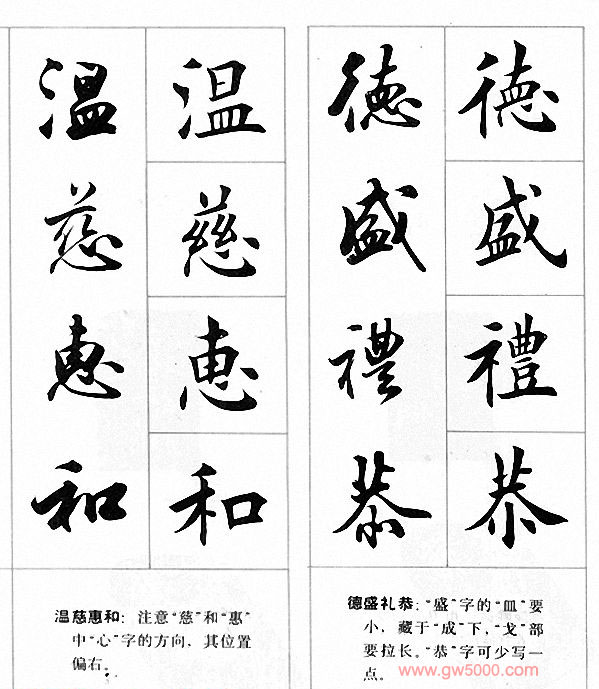 德盛禮恭
德盛禮恭
德盛礼恭：“盛”字的“皿”要
小，藏于“成”下，“戈”部
要拉长。“恭”字可少写一
点。
温慈惠和
温慈惠和
温慈惠和：注意“慈”和“惠”
中“心”字的方向，其位置
偏右。
www.gw5000.com